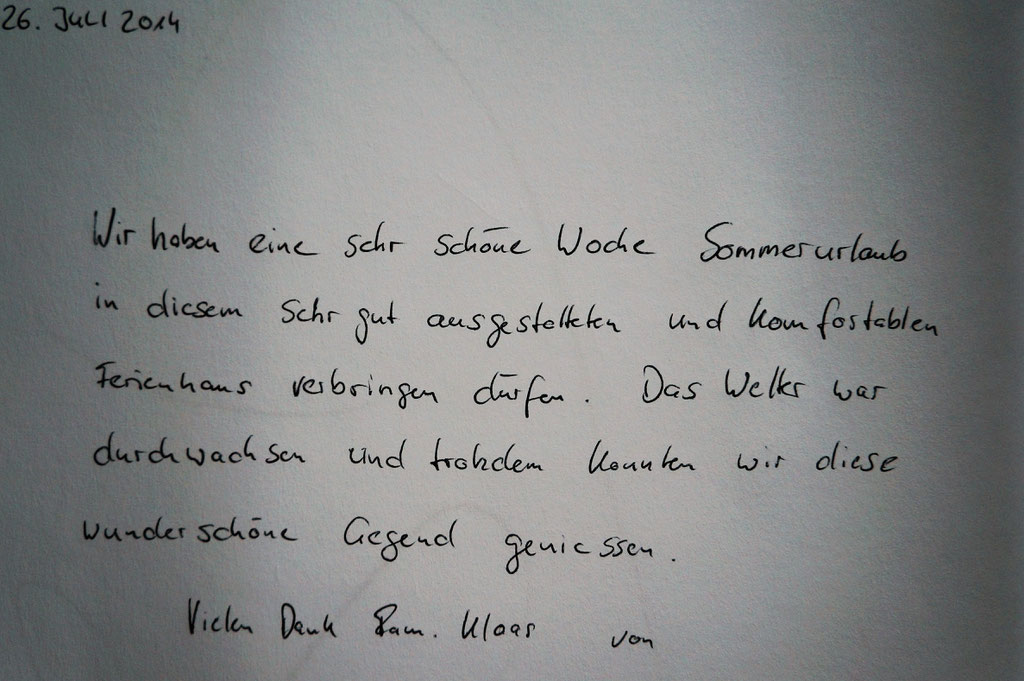 26. Juli 2014
Wir haben eine sehr schöne Woche Sommerurlaub
in diesem sehr gut ausgestatteten und komfortablen
Ferienhaus verbringen dürfen. Das Wetter war
durchwachsen und trotzdem konnten wir diese
wunderschöne Gegend geniessen.
Vielen Dank Fam. Klaas von